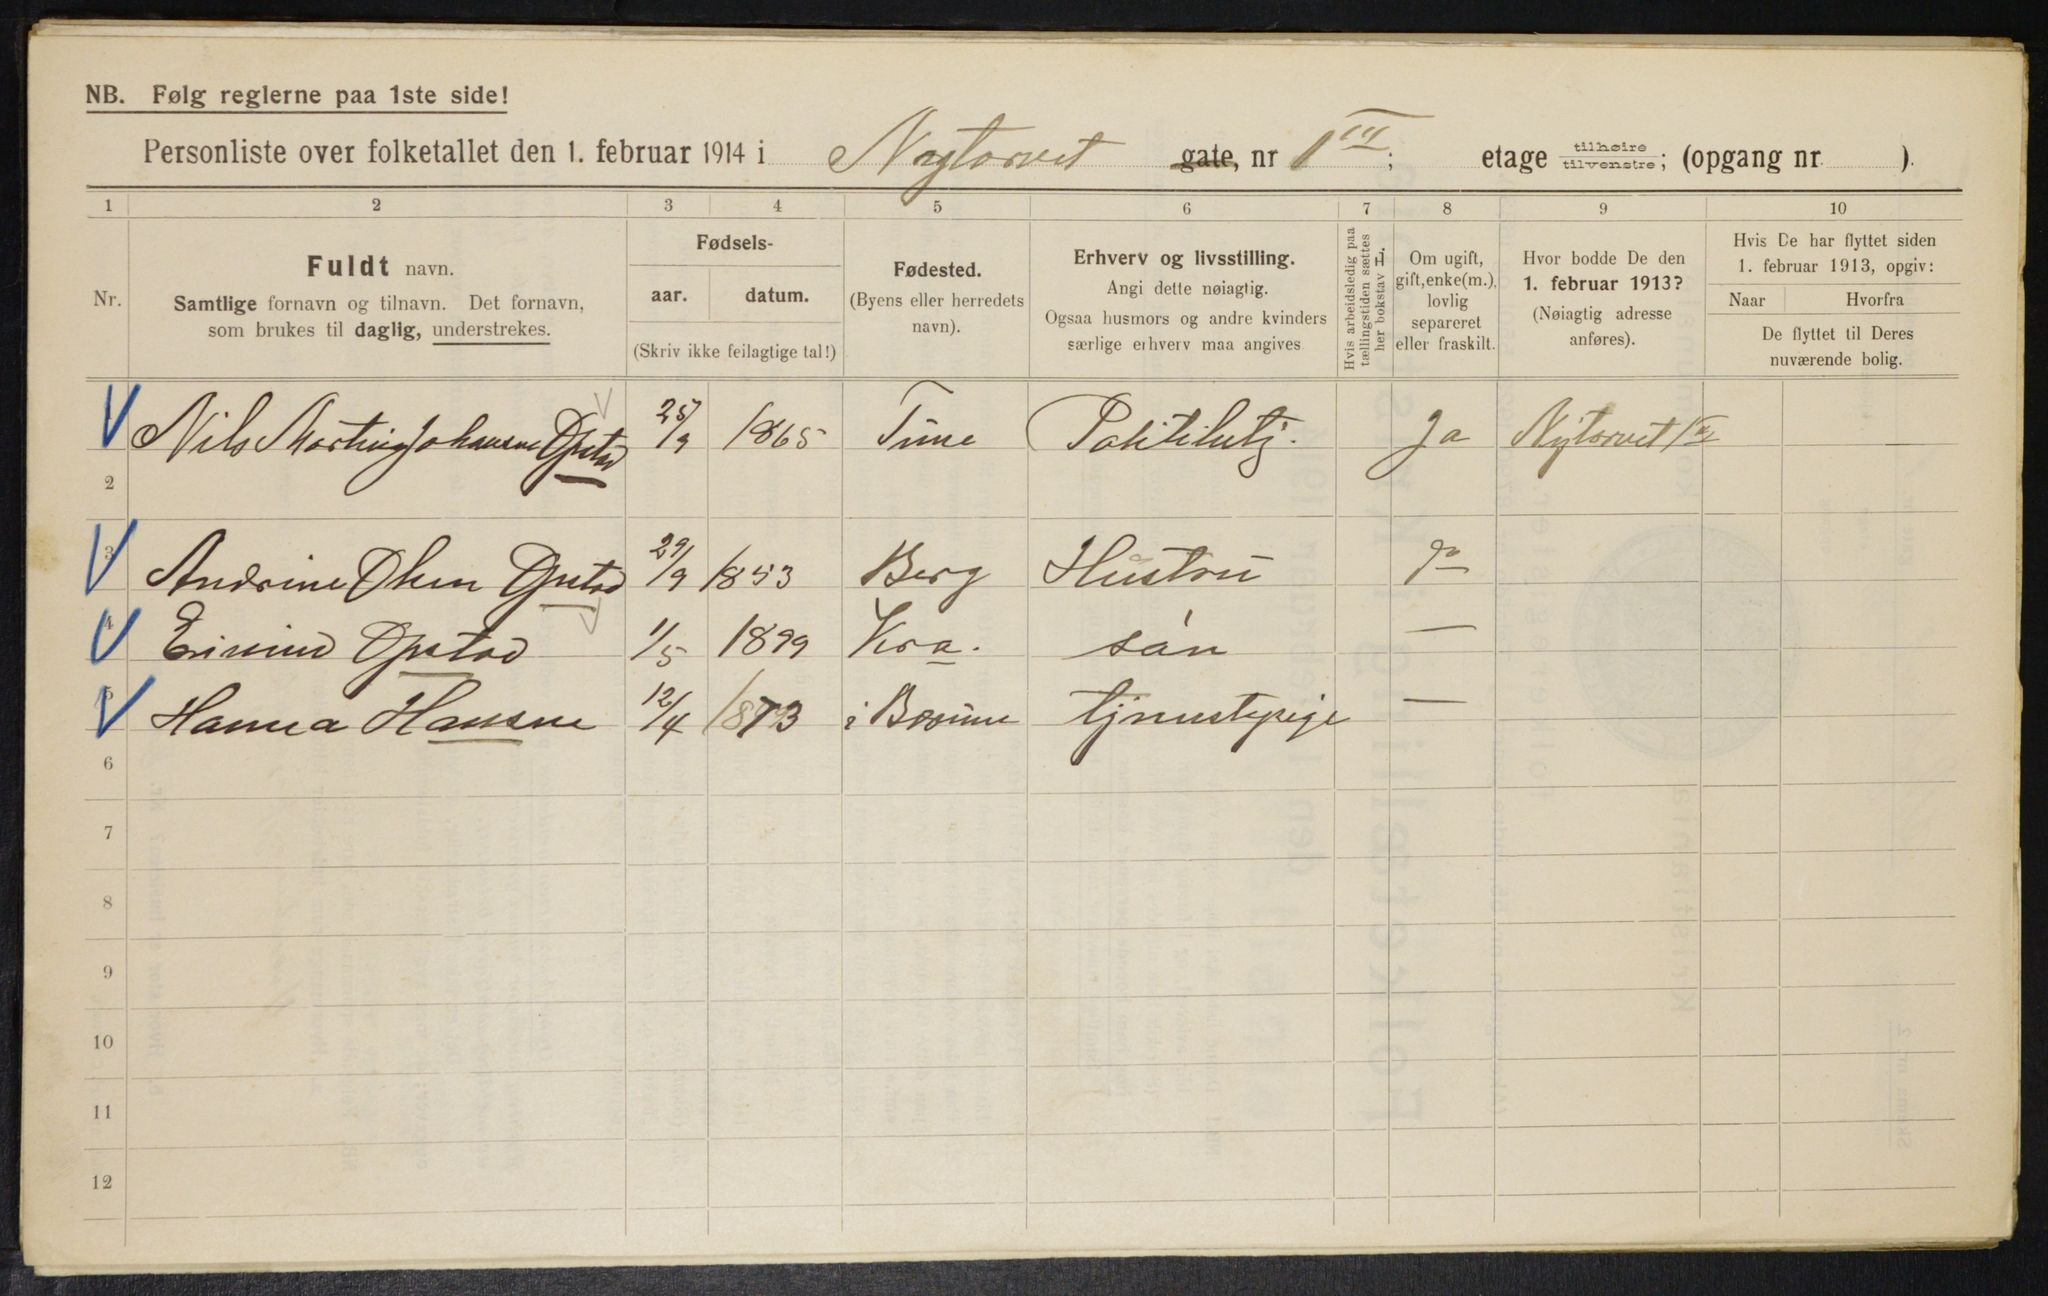 NB. Følg reglerne paa 1ste side!
Personliste over folketallet den 1. februar 1914 i Nytorvet gate, nr 1 III; etage tilhøire tilvenstre; (opgang nr. ).
1 2 3 4 5 6 7 8 9 10
Nr.
Fuldt navn.
Samtlige fornavn og tilnavn. Det fornavn,
som brukes til daglig, understrekes.
Fødsels-
aar. datum.
(Skriv ikke feilagtige tal!)
Fødested.
(Byens eller herredets
navn).
Erhverv og livsstilling.
Angi dette nøiagtig.
Ogsaa husmors og andre kvinders
særlige erhverv maa angives
Hvis arbeidsledig paa
tællingstiden sættes
her bokstav L.
Om ugift,
gift, enke(m.),
lovlig
separeret
eller fraskilt.
Hvor bodde De den
1. februar 1913?
(Nøiagtig adresse
anføres).
Hvis De har flyttet siden
1. februar 1913, opgiv:
Naar Hvorfra
De flyttet til Deres
nuværende bolig.
1 Nils Martin Johansen Opstad 25/9 1865 Tune Ja Nytorvet 1
2
3 Andrine Olsen Opstad 29/9 1853 Berg Hustru
4 Opstad 1/5 1899 Kra. sön —
5 Hanna Hansen 12/4 1873 i Bærum tjenestepige —
6
7
8
9
10
11
12